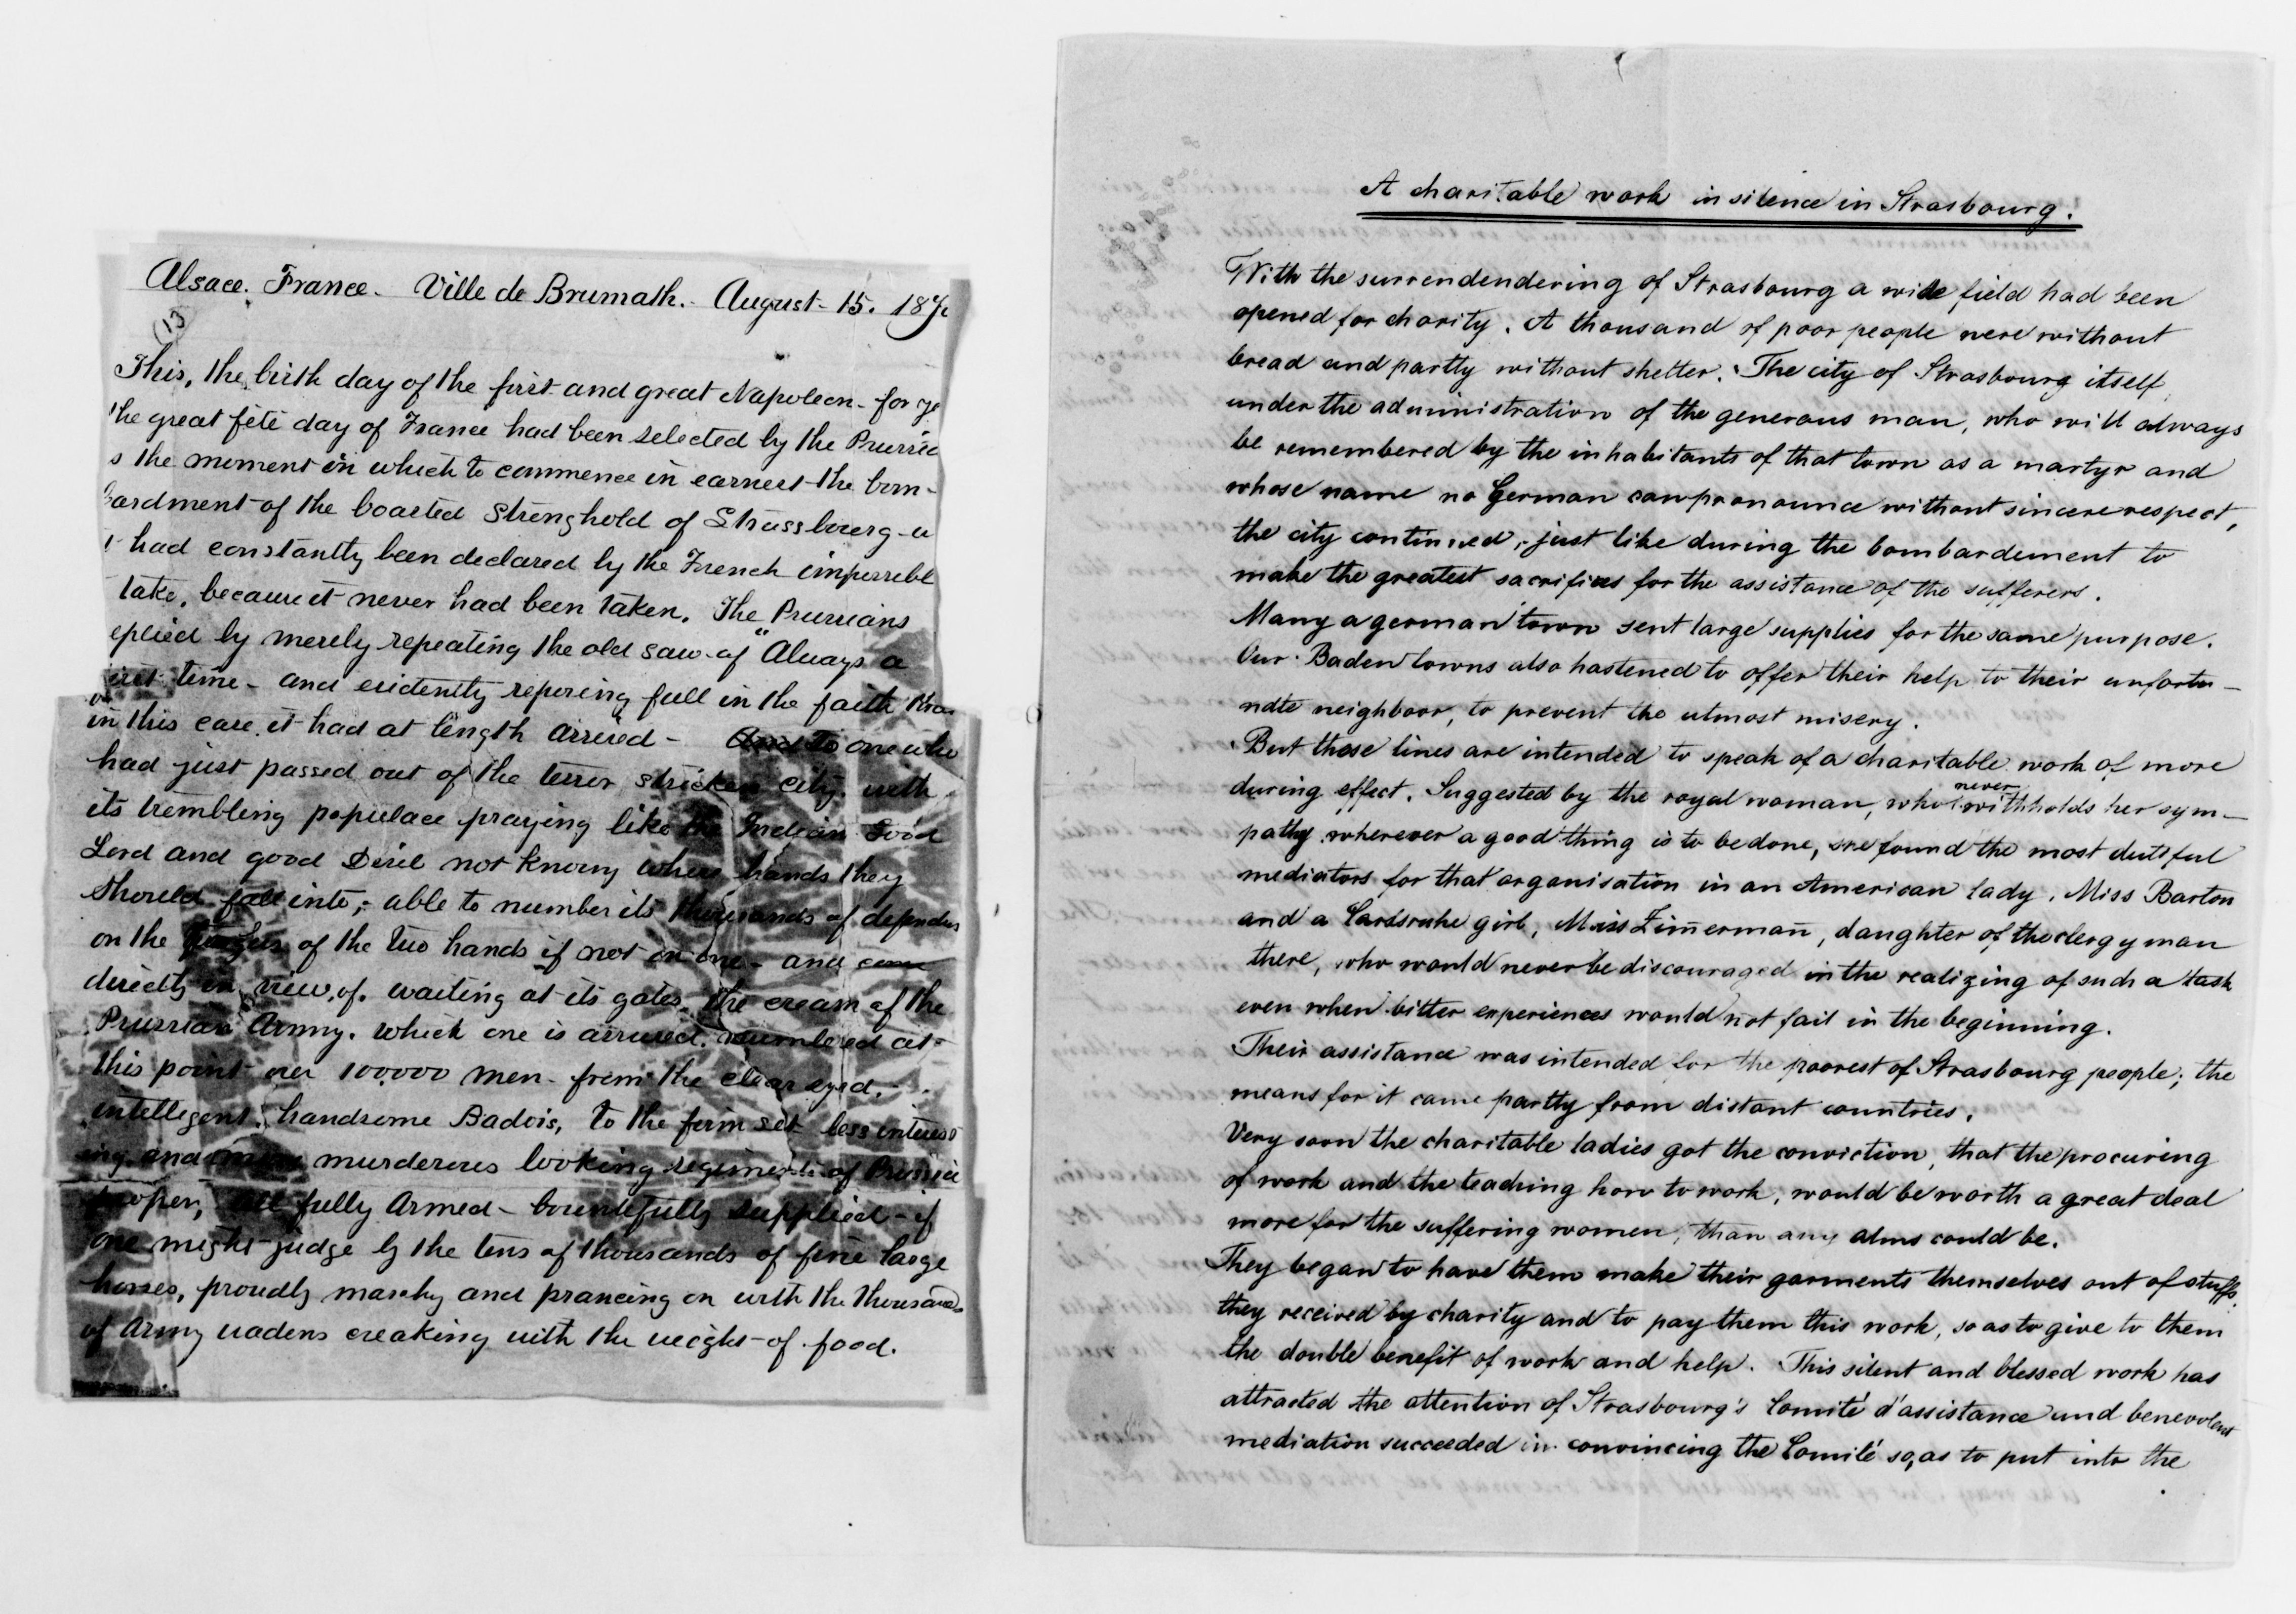 Alsace. France - Ville de Brumath. - August - 15. 187
(13)
This, the birth day of the first and great Napoleon - for
the great fête day of France had been selected by the Prussia
s the moment in which to commence in earnest the bom-
bardment of the boasted stronghold of Strassbourg - a
t had constantly been declared by the French impossible
take, because it never had been taken. The Prussians
eplied by merely repeating the old saw of "Always a
irst time - and evidently reposing full in the faith tha
in this case, it had at length arrived - And to one who
had just passed out of the terror stricken city, with
its trembling populace praying like the Indian Good
Lord and good Devil not knowing whose hands they
should fall into, - able to number its thousands of defenders
on the fingers of the two hands if not on one - and came
directly in view, of, waiting at its gates, the cream of the
Prussian Army. which one is assured, numbered at
this point over 100,000 men - from the clear eyed,
intelligent, handsome Badois, to the firm set less interest
ing and more murderous looking regiments of Prussia
proper, all fully armed - bountifully supplied - if
one might judge by the tens of thousands of fine large
horses, proudly marching and prancing on with the thousands
of Army wadens creaking with the weight of food.
A charitable work in silence in Strasbourg.
With the surrendendering of Strasbourg a wide field had been
opened for charity. A thousand of poor people were without
bread and partly without shelter. The city of Strasbourg itself,
under the administration of the generous man, who will always
be remembered by the inhabitants of that town as a martyr and
whose name no German can pronounce without sincere respect,
the city continued, just like during the bombardement to
make the greatest sacrifices for the assistance of the sufferers.
Many a german town sent large supplies for the same purpose.
Our Baden towns also hastened to offer their help to their unfortu-
nate neighboor, to prevent the utmost misery.
But these lines are intended to speak of a charitable work of more
during effect. Suggested by the royal woman, who never withholds her sym-
pathy wherever a good thing is to be done, she found the most dutiful
mediators for that organisation in an American lady, Miss Barton
and a Carlsruhe girl, Miss Zim̅erman̅, daughter of the clergyman
there, who would never be discouraged in the realizing of such a task
even when bitter experiences would not fail in the beginning.
Their assistance was intended for the poorest of Strasbourg people; the
means for it came partly from distant countries.
Very soon the charitable ladies got the conviction, that the procuring
of work and the teaching how to work, would be worth a great deal
more for the suffering women, than any alms could be.
They began to have them make their garments themselves out of stuffs
they received by charity and to pay them this work, so as to give to them
the double benefit of work and help. This silent and blessed work has
attracted the attention of Strasbourg's Comité d'assistance and benevolent
mediation succeeded in convincing the Comité so, as to put into the